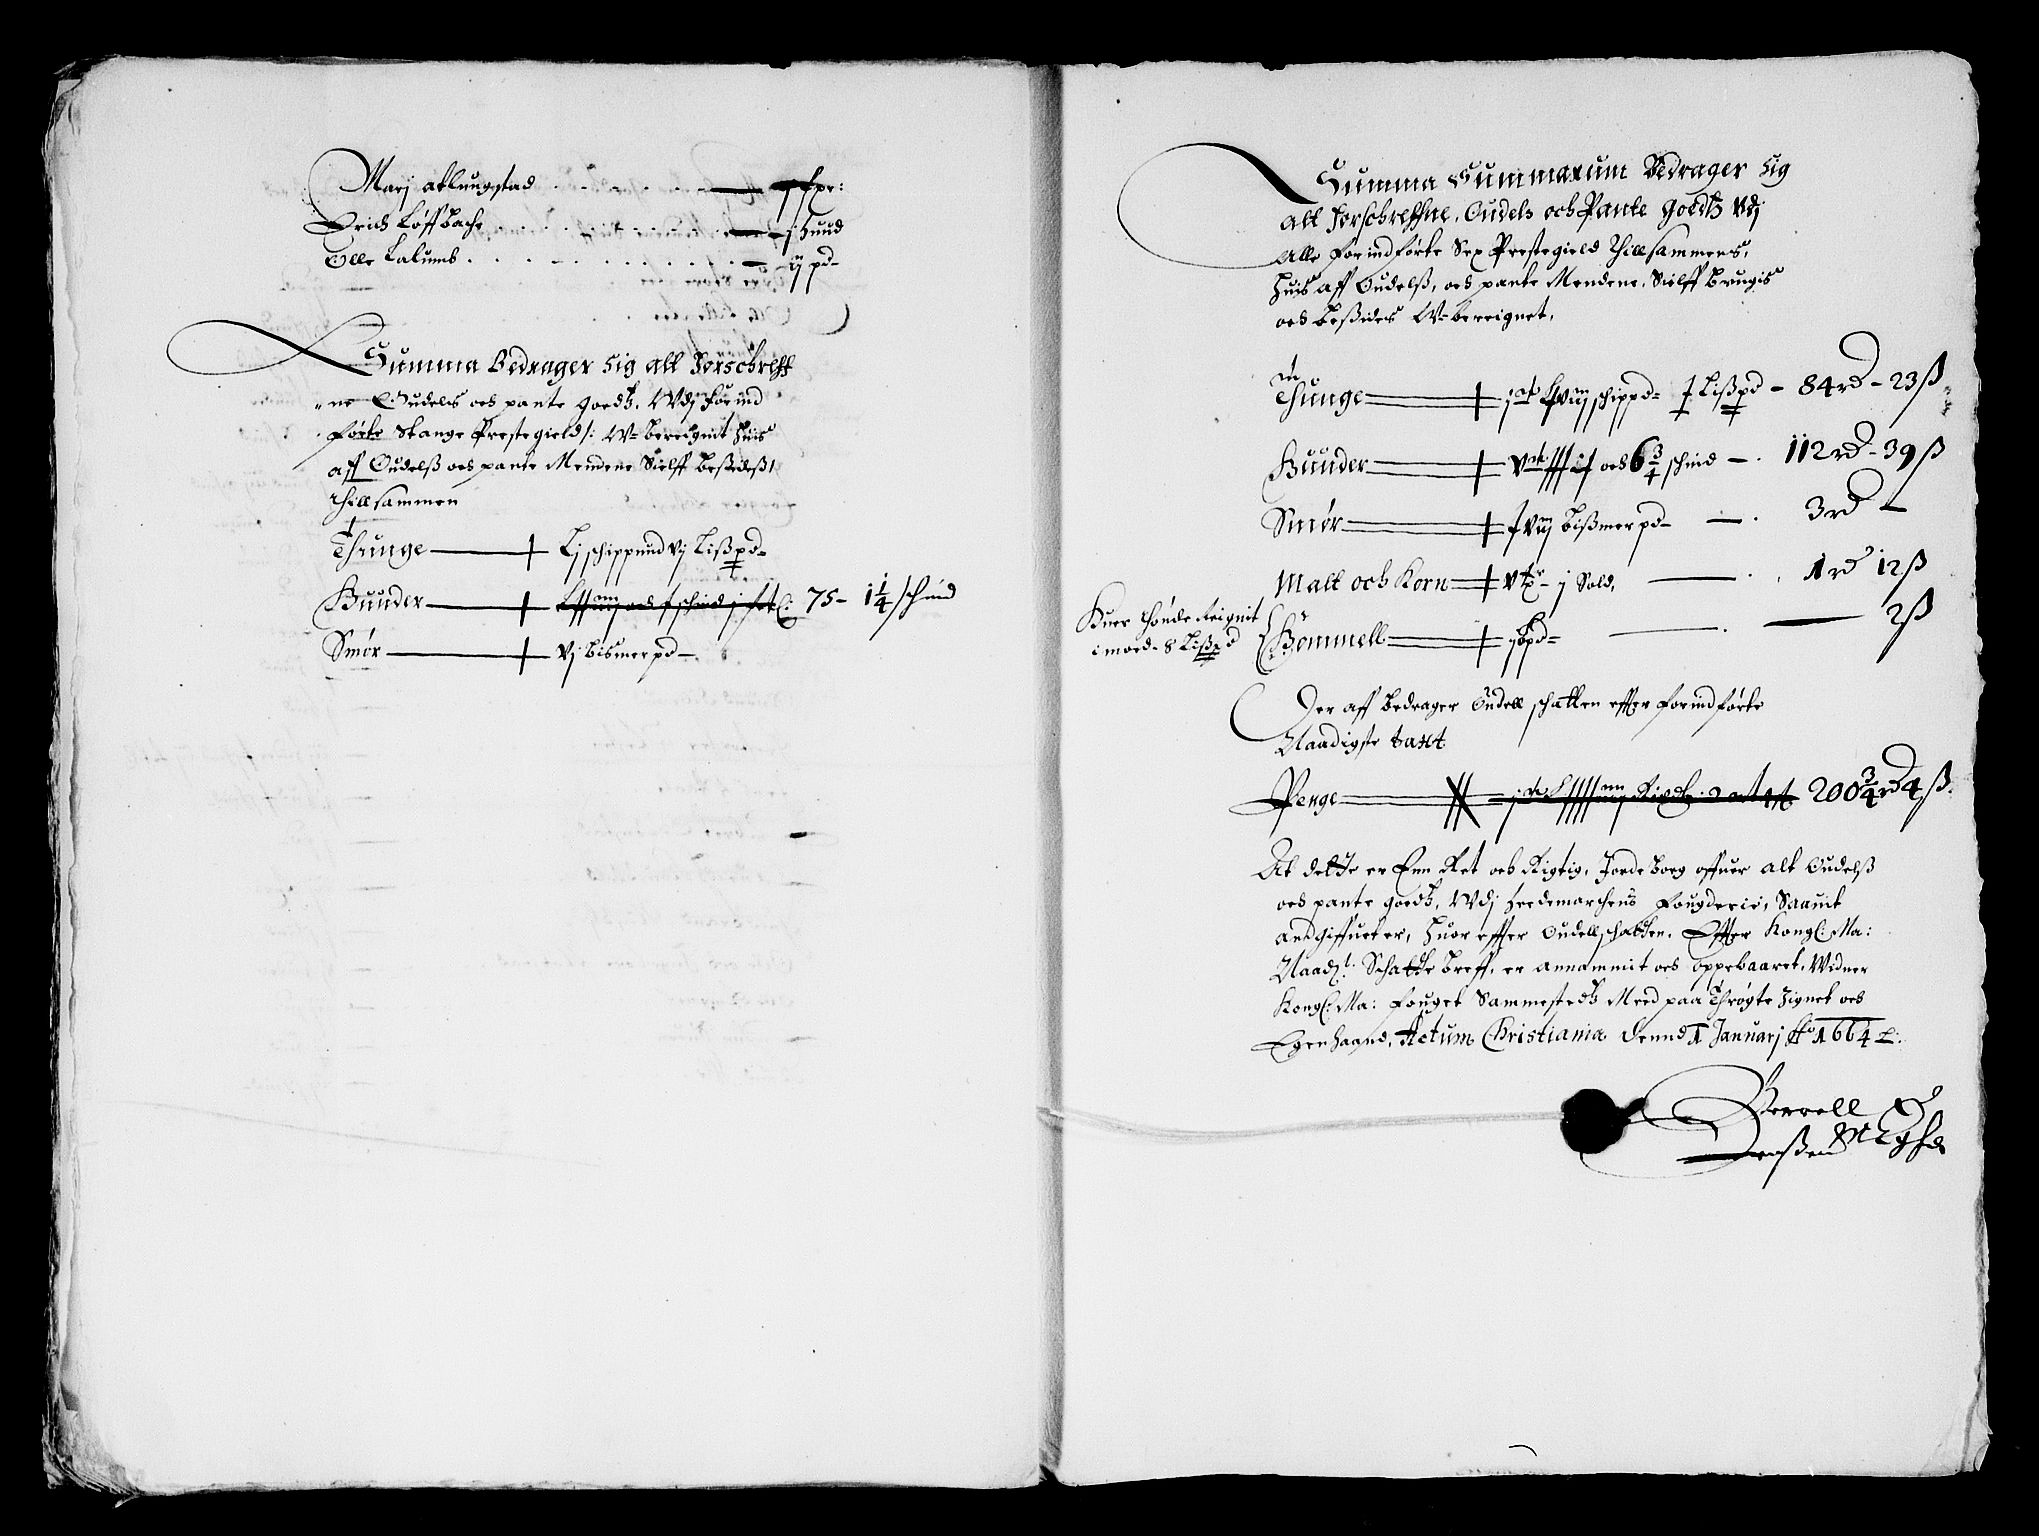 Marj atlungstad . . . . . . —
Erich Løffbache . . . . . . — j huud
Olle Lalumb . . . . . . . . — ij pd
Summa Bedrager Sig alt Forschreff
ne Oudels och pante goedtz, Udj Forind
Førte Stange Prestegield /: U-bereignit huis
aff Oudelß och pante Mendene Sielff beßider,
thillsammen
Thunge — Lj schippund Vj Lißpd
Huuder — 75 - 1 1/4 schind
Smør — Vj bismerpd
Summa Summarum Bedrager Sig
alt Forschreffne, Oudels och Pante goedtz Udj
Alle Forindførte Sex Prestegield thillsammens,
huis aff Oudelß, och pante Mendene, Sielff brugis
och beßider U-bereignet,
Thunge — Lißpd - 84 rd - 23 ß
Huuder — och 6 3/4 schind — 112 rd - 39 ß
Smør — bißmerpd — 3 rd —
Malt och Korn — j Sold, — 1 rd 12 ß
Huer thønde Reignit
imoed - 8 Lißpd
Hommell — pd — 2 ß
Der aff bedrager Oudell schatten effter forindførte
Naadigste taxt
Penge — 200 3/4 rd 4 ß
At dette er Enn Ret och Rigtig, Jordebog offuer alt Oudelß
och pante goedtz, Udj Hedemarchens Fougderie, Saauit
andgiffuet er, huor effter Oudellschatten, Effter Kongl: Ma:
Naad: Schatte breff, er annammit och oppebaaret, Widner
Kongl: Ma: Fouget Sammestedtz Med paa Thrøgte Zignet och
Egen haand, Actum Christiania Dennd 1 Januarj Ao 1664